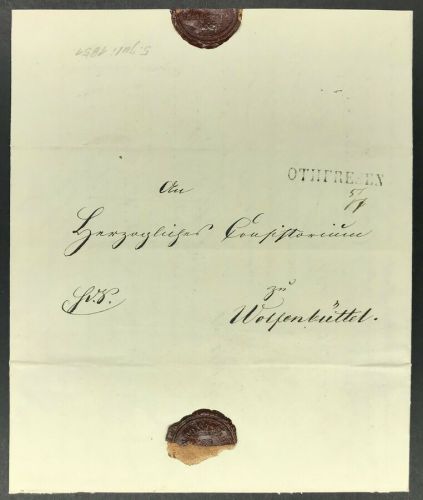 5. Juli 1851
OTHFRESEN
5/11
An
Herzogliches Consistorium
zu
Wolfenbüttel.